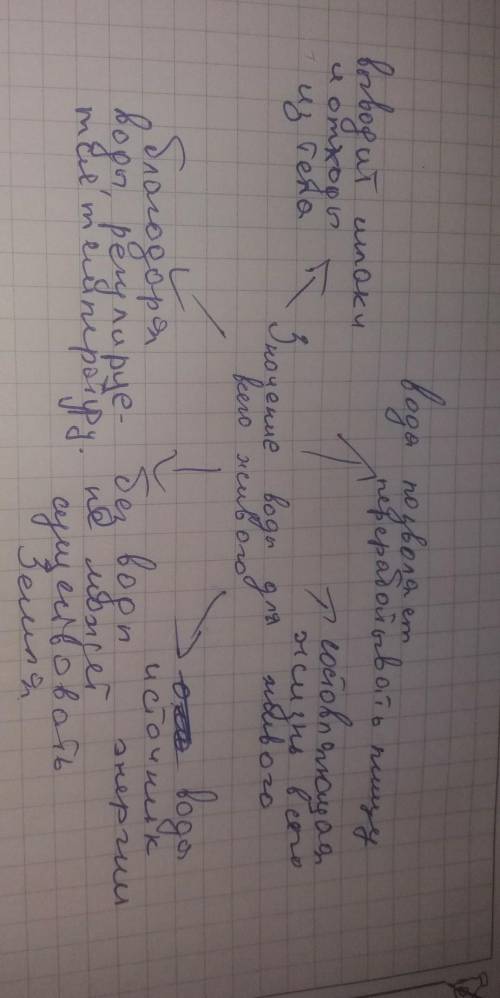 выводит шлаки
и отходы
из тела
вода позволяет
перерабатывать пищу
Значение воды для
всего живого
составляющая
жизнь всего
живого
благодоря
воды регулируе-
тся температуру.
без воды
не может
существовать
Земля
вода
источник
энергии